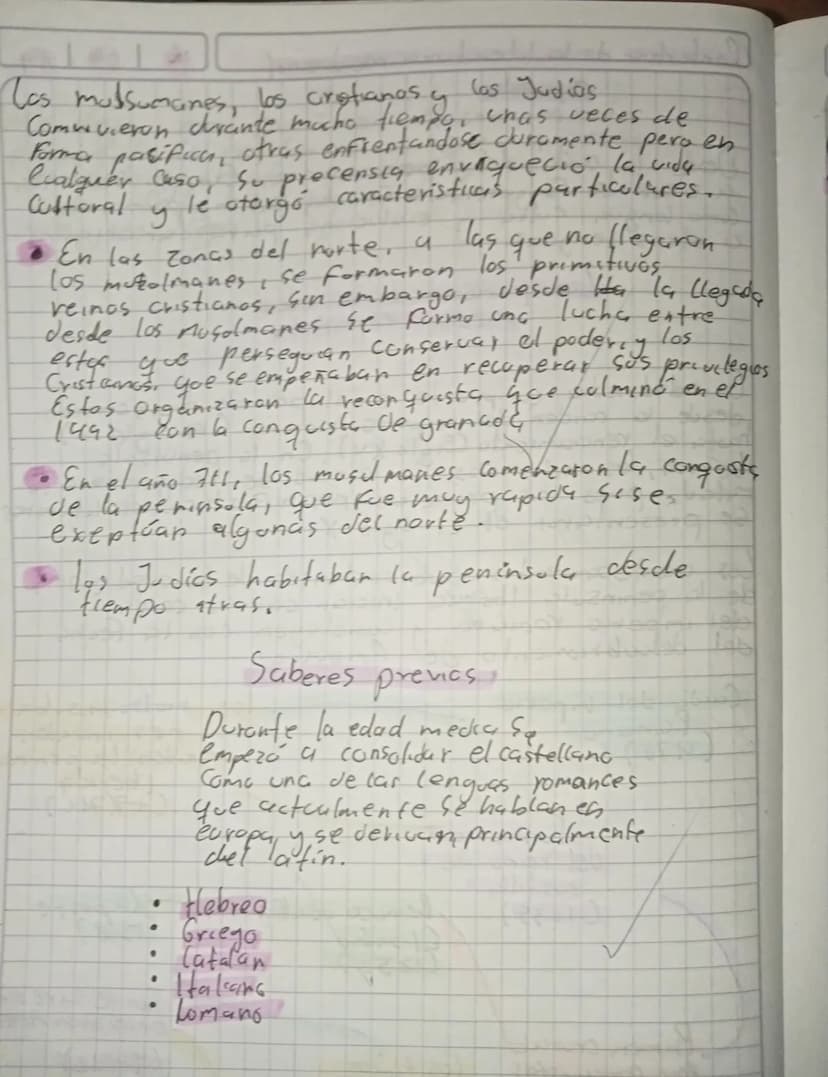 Los mulsumanes, los cristianos y los Judios
Convivieron durante mucho tiempo, unas veces de
Forma pacifica, otras enfrentandose duramente pero en
Cualquier caso, su precensia enriqueció la vida
Cultoral y le otorgó caracteristicas particulares.
• En las zonas del norte, a las que no llegaron
los musolmanes, se formaron los primitivos
reinos cristianos, sin embargo, desde la llegada
desde los musolmanes se formo una lucha entre
estos que perseguian conservar el poder, y los
Cristianos, que se empeñaban en recuperar sus privilegios
Estos organizaron la reconquista que culminó en el
1492 con la conquista de granada
• En el año 711, los musulmanes comenzaron la conquista
de la peninsola, que fue muy rapida si se
exeptúan algonas del norte.
• los Judios habitaban la peninsula desde
tiempo atras.
Saberes previos
Durante la edad media se
empezó a consolidar el castellano
Como una de las lenguas romances
que actualmente se hablan en
europa, y se derivan principalmente
del latin.
• Hebreo
• Griego
• Catalan
• Italiano